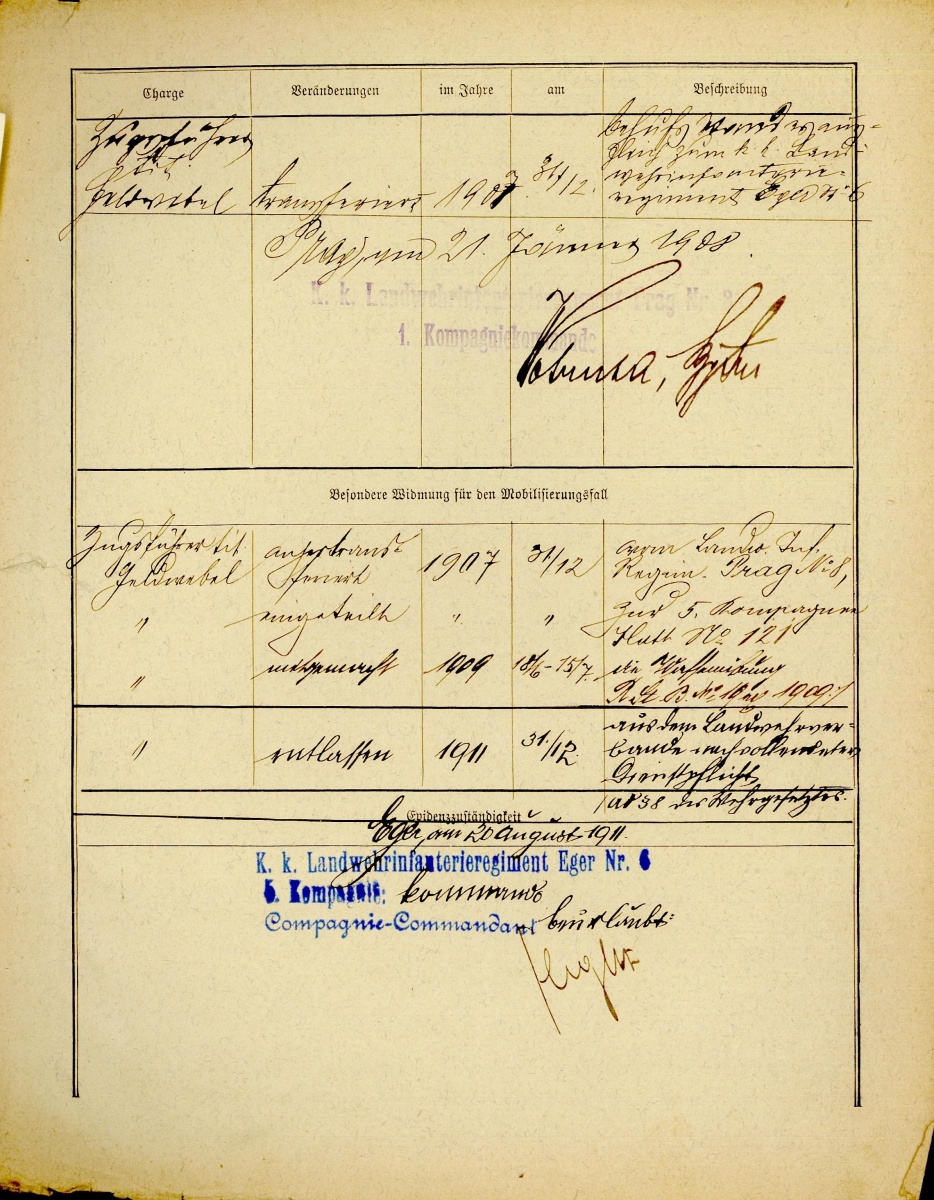 Charge Veränderungen im Jahre am Beschreibung
Zugsführer
tit.
Feldwebel transferiert 1907 31/12.
behufs Standesaus-
gleich zum k. k. Land-
wehrinfanterie-
regiment Eger N: 6
Prag, am 21. Jänner 1908.
K. k. Landwehrinfanterieregiment Prag Nr. 8
1. Kompagniekommando
Besondere Widmung für den Mobilisierungsfall
Zugsführer tit.
Feldwebel
anher trans-
feriert
1907 31/12
vom Landw. Inf.
Regim. Prag No 8,
" eingeteilt " "
zur 5. Kompagnie
Blatt No 121
" mitgemacht 1909 18/6 - 15/7.
die Waffenübung
" entlassen 1911 31./12.
aus dem Landwehrver-
bande nach vollendeter
Dienstpflicht
des Wehrgesetzes.
Evidenzzuständigkeit
Eger, am 20 August 1911.
K. k. Landwehrinfanterieregiment Eger Nr. 6
5. Kompagnie: kommando
Compagnie-Commandant beurlaubt: